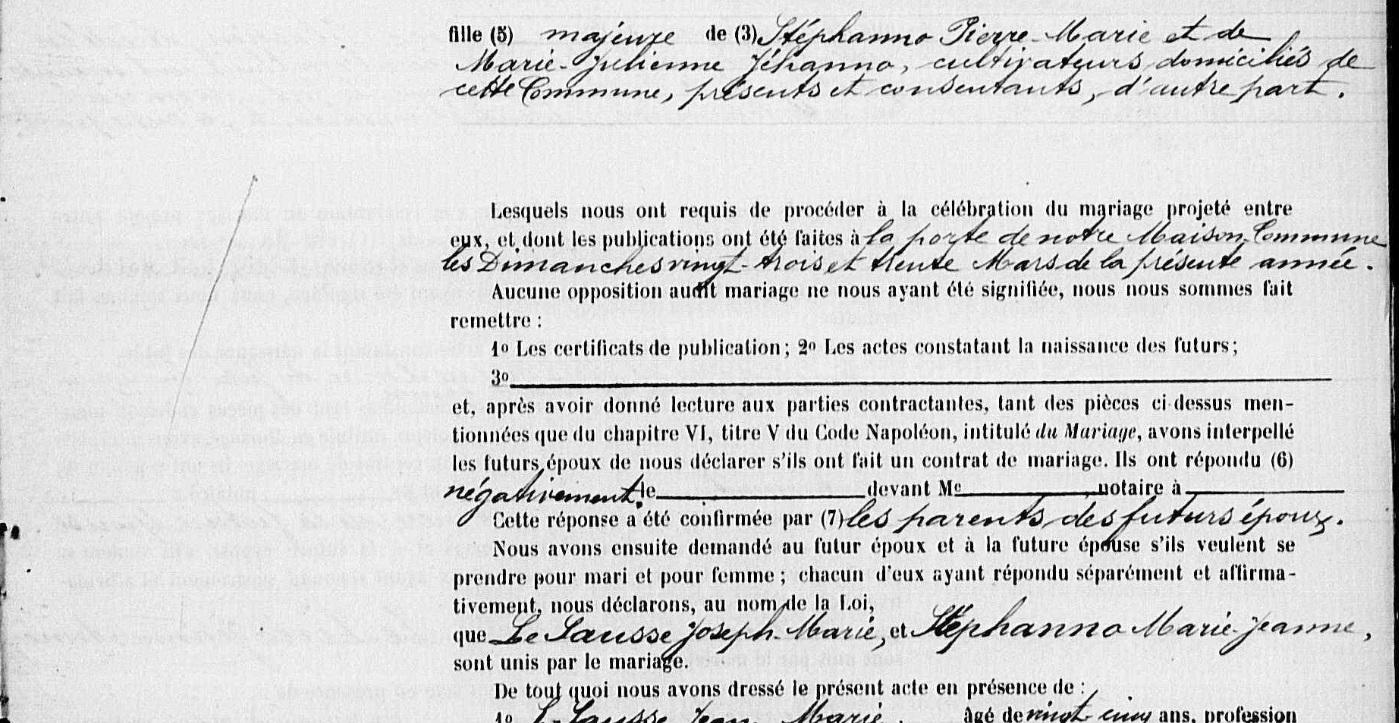 fille (5) majeure de (3) Stéphanno Pierre-Marie et de
Marie-Julienne Jéhanno, cultivateurs domiciliés de
cette Commune, présents et consentants, d'autre part.
Lesquels nous ont requis de procéder à la célébration du mariage projeté entre
eux, et dont les publications ont été faites à la porte de notre Maison Commune
les Dimanches vingt-trois et trente Mars de la présente année.
Aucune opposition audit mariage ne nous ayant été signifiée, nous nous sommes fait
remettre :
1º Les certificats de publication ; 2º Les actes constatant la naissance des futurs ;
3º
et, après avoir donné lecture aux parties contractantes, tant des pièces ci-dessus men-
tionnées que du chapitre VI, titre V du Code Napoléon, intitulé du Mariage, avons interpellé
les futurs époux de nous déclarer s'ils ont fait un contrat de mariage. Ils ont répondu (6)
négativement. le devant Me , notaire à
Cette réponse a été confirmée par (7) les parents des futurs époux.
Nous avons ensuite demandé au futur époux et à la future épouse s'ils veulent se
prendre pour mari et pour femme ; chacun d'eux ayant répondu séparément et affirma-
tivement, nous déclarons, au nom de la Loi,
que Le Sausse Joseph-Marie, et Stéphanno Marie-Jeanne,
sont unis par le mariage.
De tout quoi nous avons dressé le présent acte en présence de :
1º L Sausse Jean Marie âgé de vingt-cinq ans, profession